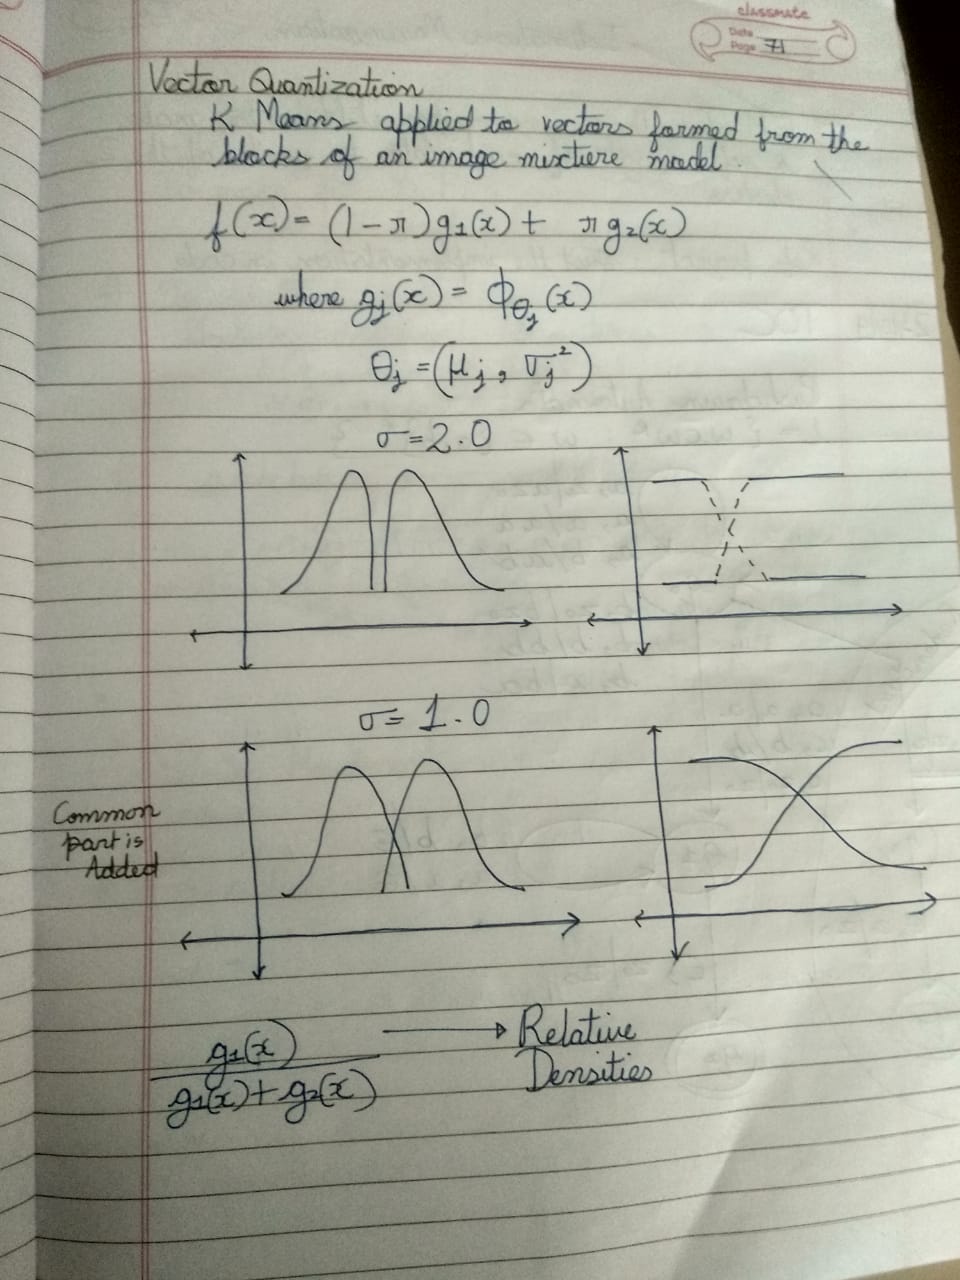 classmate
Date
Page 71
Vector Quantization
K Means applied to vectors formed from the
blocks of an image mixture model.
f(x) = (1 - π) g₁(x) + π g₂(x)
where gⱼ(x) = ϕθⱼ(x)
θⱼ = (μⱼ, σⱼ²)
σ = 2.0
σ = 1.0
Common
part is
Added
g₁(x)
g₁(x) + g₂(x)
Relative
Densities